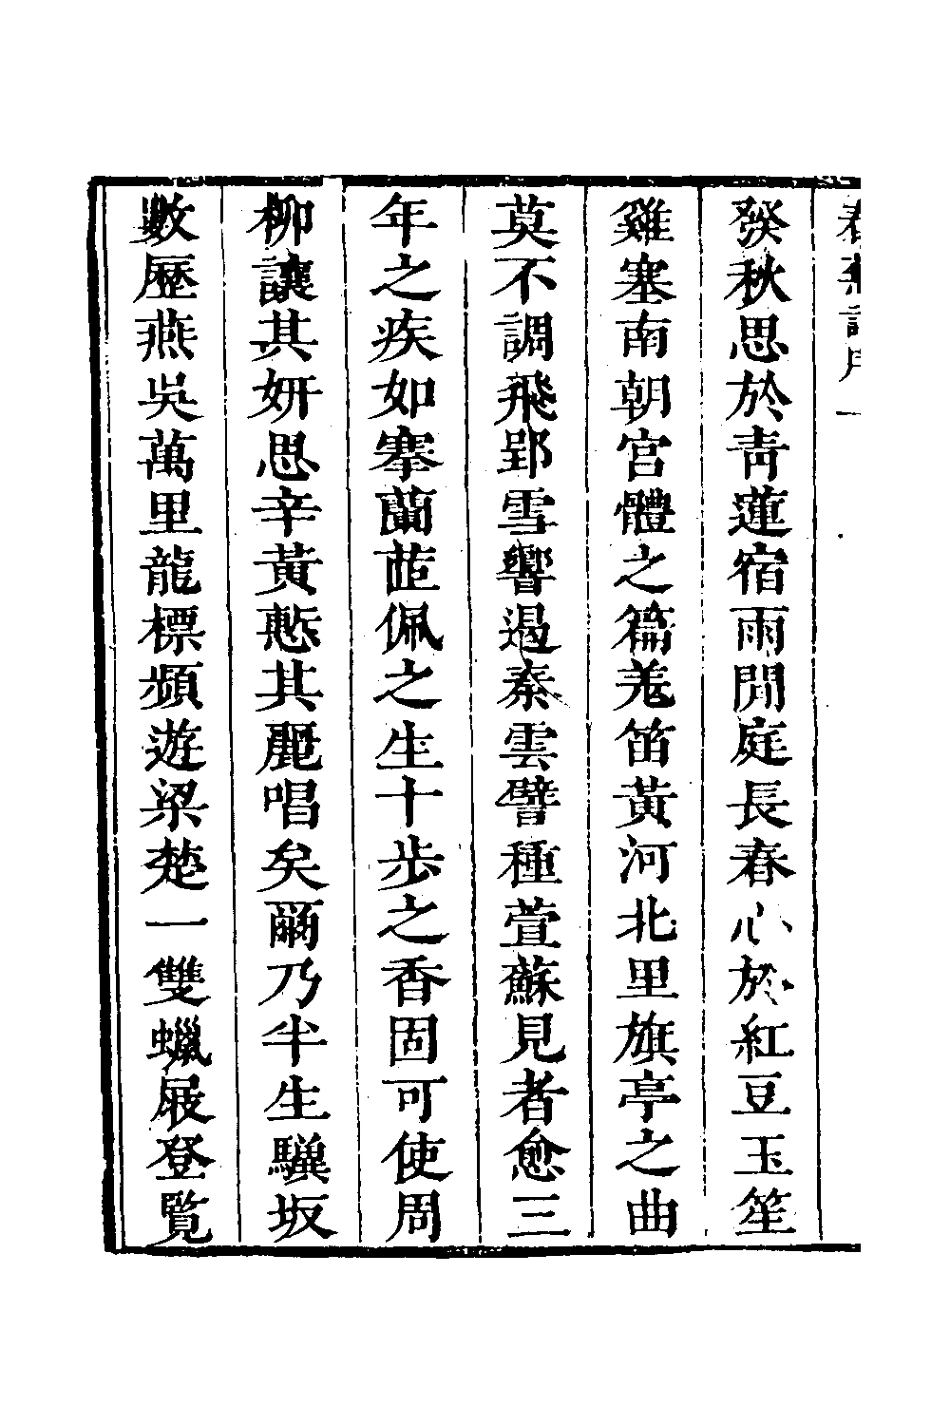 發秋思於青蓮宿雨閒庭長春心於紅豆玉笙
雞塞南朝宮體之篇羌笛黃河北里旗亭之曲
莫不調飛郢雪響遏秦雲譬種萱蘇見者愈三
年之疾如搴蘭茝佩之生十步之香固可使周
柳讓其妍思辛黃慙其麗唱矣爾乃半生驥坂
數歷燕吳萬里龍標頻遊梁楚一雙蠟屐登覽